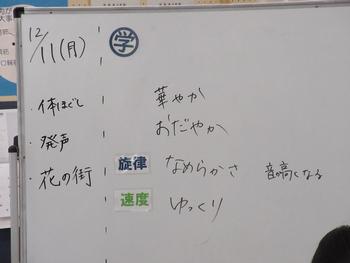 12/11(月)
・体ほぐし
・発声
・花の街
学
華やか
おだやか
旋律 なめらかさ 音の高くなる
速度 ゆっくり